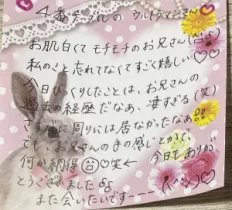 4番テーブルの ウルトラマンさん♡
お肌白くてモチモチのお兄さん(だぁ)
私のこと忘れてなくてすごく嬉しい♡♡
今日びっくりしたことは、お兄さんの
過去の経歴だなあ、凄すぎる(笑)
周りには居なかったなぁ
でも、お兄さんの
何か納得 笑← 今日もありが
とうございました
また会いたいですーーー